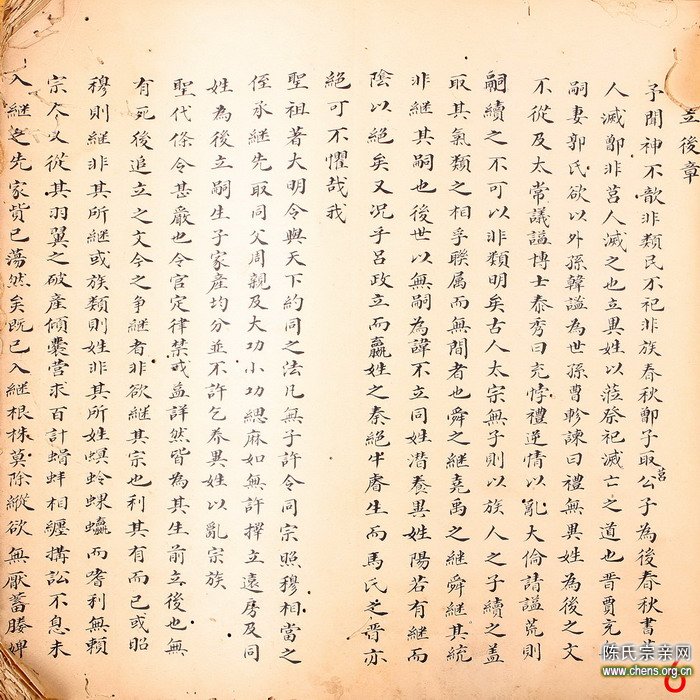 立後章
予聞神不歆非類民不祀非族春秋鄫子取莒公子為後春秋書莒
人滅鄫非莒人滅之也立異姓以蒞祭祀滅亡之道也晋賈充
嗣妻郭氏欲以外孫韓謐為世孫曹軫諫曰禮無異姓為後之文
不從及太常議謚博士秦秀曰充悖禮逆情以亂大倫請謚荒則
嗣續之不可以非類明矣古人太宗無子則以族人之子續之蓋
取其氣類之相孚聯属而無間者也舜之継堯禹之継舜継其統
非継其嗣也後世以無嗣為諱不立同姓潜養異姓陽若有継而
陰以絕矣又况乎吕政立而嬴姓之秦絕牛睿生而馬氏之晋亦
絕可不懼哉我
聖祖著大明令與天下約同之法凡無子許令同宗照穆相當之
侄承継先取同父周親及大功小功緦麻如無許擇立遠房及同
姓為後立嗣生子家產均分並不許乞养異姓以亂宗族
聖代條令甚嚴也令官定律禁戒益詳然皆為其生前立後也無
有死後追立之文今之争継者非欲継其宗也利其有而已或昭
穆則継非其所継或族類則姓非其所姓螟蛉蜾蠃而嗜利無頼
宗人又從其羽翼之破產傾囊营求百計蜎蚌相纏搆訟不息未
入継之先家貲已蕩然矣既已入継根株莫除縱欲無厭蓄媵婢
陈氏宗亲网
www.chens.org.cn
6